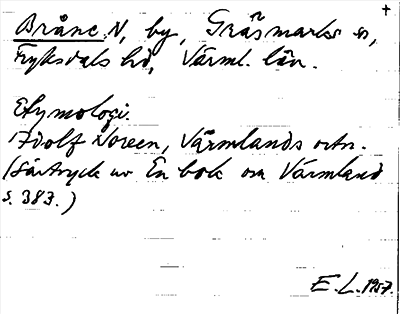 Brånc N, by, Gräsmarks sn, †
Fryksdals hd, Värml. län.
Etymologi.
Adolf Noreen, Värmlands ortn.
(Särtryck av En bok om Värmland
s. 383.)
E. L. 1957.